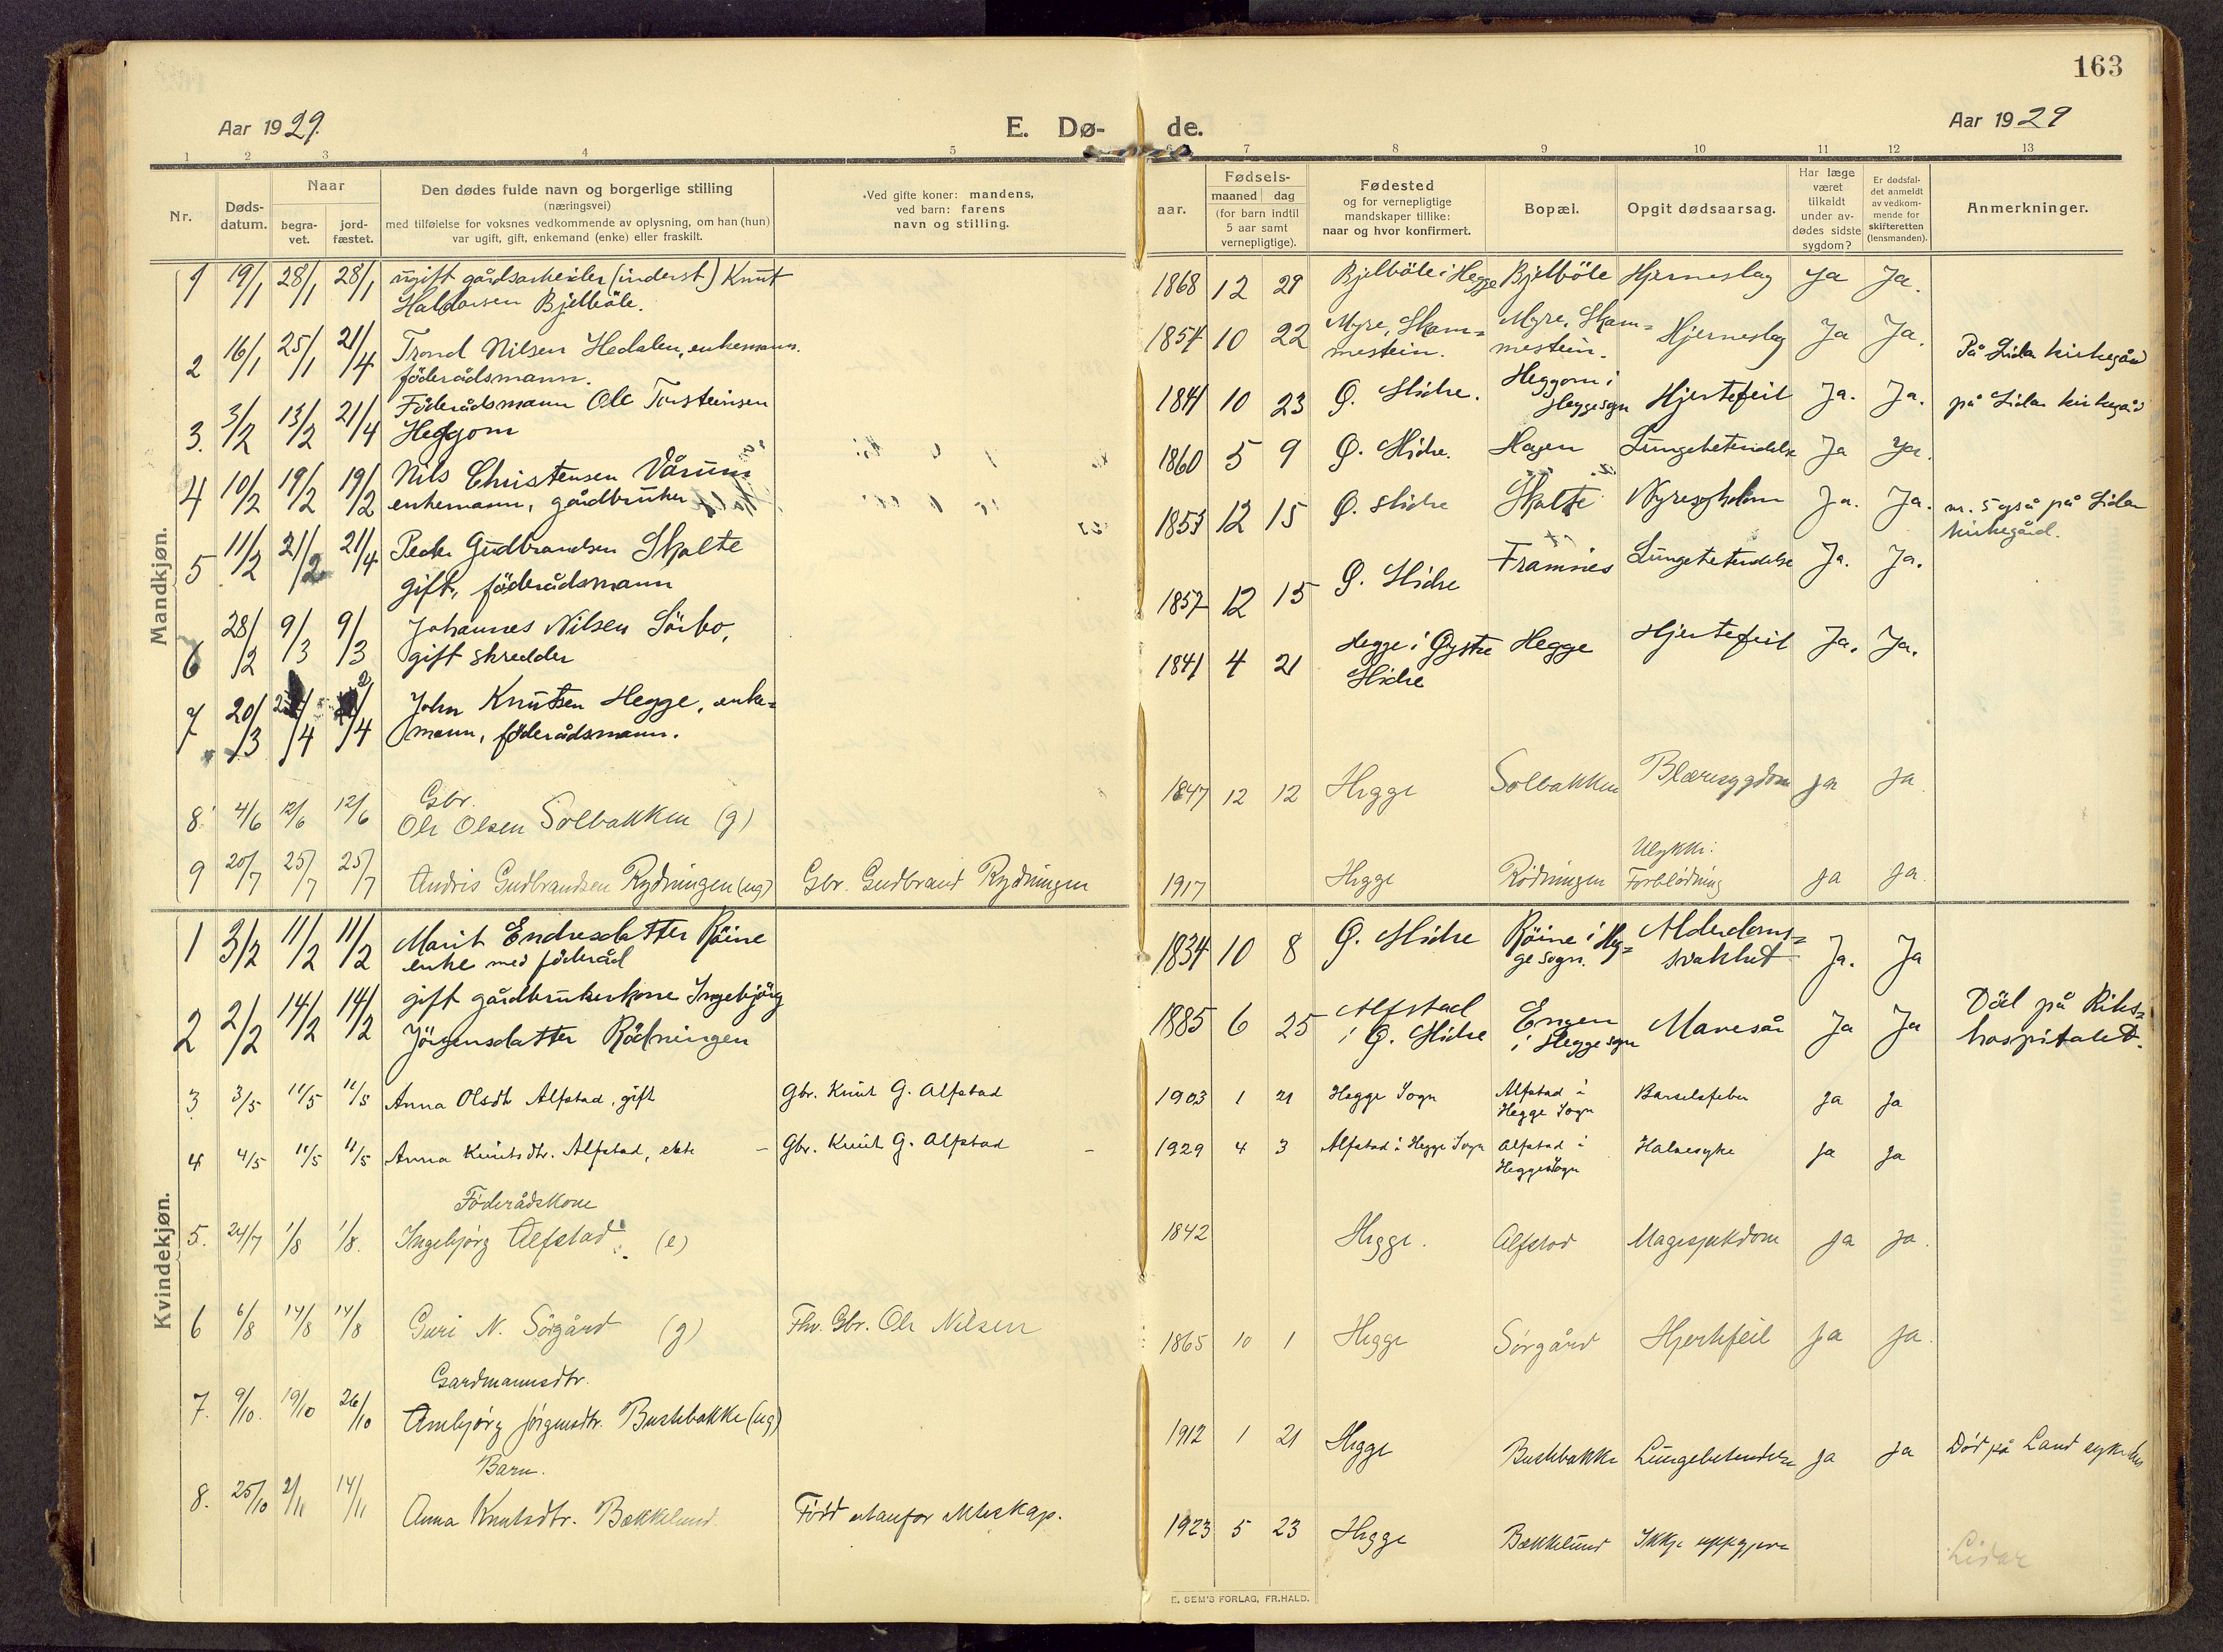 163
Aar 1929.
E. Dø-
de.
Aar 1929
1 2 3 4 5 6 7 8 9 10 11 12 13
Nr.
Døds-
datum.
Naar
begra-
vet.
jord-
fæstet.
Den dødes fulde navn og borgerlige stilling
(næringsvei)
med tilføielse for voksnes vedkommende av oplysning, om han (hun)
var ugift, gift, enkemand (enke) eller fraskilt.
Ved gifte koner: mandens,
ved barn: farens
navn og stilling.
aar.
Fødsels-
maaned dag
(for barn indtil
5 aar samt
vernepligtige).
Fødested
og for vernepligtige
mandskaper tillike:
naar og hvor konfirmert.
Bopæl.
Opgit dødsaarsag.
Har læge
været
tilkaldt
under av-
dødes sidste
sygdom?
Er dødsfal-
det anmeldt
av vedkom-
mende for
skifteretten
(lensmanden).
Anmerkninger.
Mandkjøn.
1 19/1 28/1 28/1 ugift gårdsarbeider (inderst) Knut
Haldorsen Bjelböle.
1868 12 29 Bjelböle i Hegge Bjelböle Hjerneslag Ja Ja.
2 16/1 25/1 21/4 Trond Nilsen Hedalen, enkemann.
föderådsmann.
1854 10 22 Myre, Skam=
mestein.
Myre, Skam=
mestein.
Hjerneslag Ja Ja. På Lidar kirkegård
3. 3/2 13/2 21/4 Föderådsmann Ole Torsteinsen
Heggom
1841 10 23 Ø. Slidre. Heggom i
Heggesogn
Hjertefeil Ja. Ja. på Lidar kirkegård
4 10/2 19/2 19/2 Nils Christensen Vårum
enkemann, gårdbruker
1860 5 9 Ø. Slidre. Hagen Lungebetendelse Ja Ja.
5 11/2 21/2 21/4 Peder Gudbrandsen Skolte
gift, föderådsmann
1853 12 15 Ø. Slidre Skolte Nyresygdom Ja. Ja. nr. 5 også på Lidar
kirkegård.
6 28/2 9/3 9/3 Johannes Nilsen Sörbo,
gift skredder
1857 12 15 Ø. Slidre Framnes Lungebetendelse Ja. Ja.
7 20/3 /4 /4 John Knutsen Hegge, enke=
mann, föderådsmann.
1841 4 21 Hegge i Øystre
Slidre
Hegge Hjertefeil Ja. Ja.
8 4/6 12/6 12/6 Gbr.
Ole Olsen Solbakken (g)
1847 12 12 Hegge Solbakken Blæresygdom ja ja
9 20/7 25/7 25/7 Andris Gudbrandsen Rydningen (ug) Gbr. Gudbrand Rydningen
1917 Hegge Rödningen Ulykke:
Forblödning
ja ja
Kvindekjøn.
1 3/2 11/2 11/2 Marit Endresdatter Röine
enke med föderåd
1834 10 8 Ø. Slidre Röine i Heg=
ge sogn.
Alderdoms=
svakhet
Ja. Ja
2 2/2 14/2 14/2 gift gårdbrukerkone Ingebjörg
Jörgensdatter Rödningen
1885 6 25 Alfstad
i Ø. Slidre
Engen
i Hegge sogn
Mavesår Ja Ja Död på Riks=
hospitalet.
3 3/5 11/5 11/5 Anna Olsdtr Alfstad, gift Gbr. Knut G. Alfstad
1903 1 21 Hegge Sogn Alfstad i
Hegge Sogn
Barselsfeber Ja Ja
4 4/5 11/5 11/5 Anna Knutsdtr. Alfstad, ekte – Gbr. Knut G. Alfstad –
1929 4 3 Alfstad i Hegge Sogn Alfstad i
Hegge Sogn
Halsesyke Ja Ja
5. 24/7 1/8 1/8. Föderådskone
Ingebjörg Alfstad (e)
1842 Hegge. Alfstad Magesjukdom ja ja.
6 6/8 14/8 14/8 Guri N. Sörgård (g) Fhv. Gbr. Ole Nilsen
1865 10 1 Hegge Sörgård Hjertefeil ja ja.
7. 9/10. 19/10 26/10 Gardmannsdtr.
Ambjörg Jörgensdtr. Buskebakke (ug)
1912 1 21 Hegge Buskebakke Lungebetendelse ja ja Död på Land sykehus
8. 25/10 2/11 14/11 Barn.
Anna Knutsdtr. Bækkelund. Född utanfor ekteskap.
1923 5 23 Hegge Bækkelund Ikkje uppgjeve Lidar
E. SEM'S FORLAG, FR.HALD.